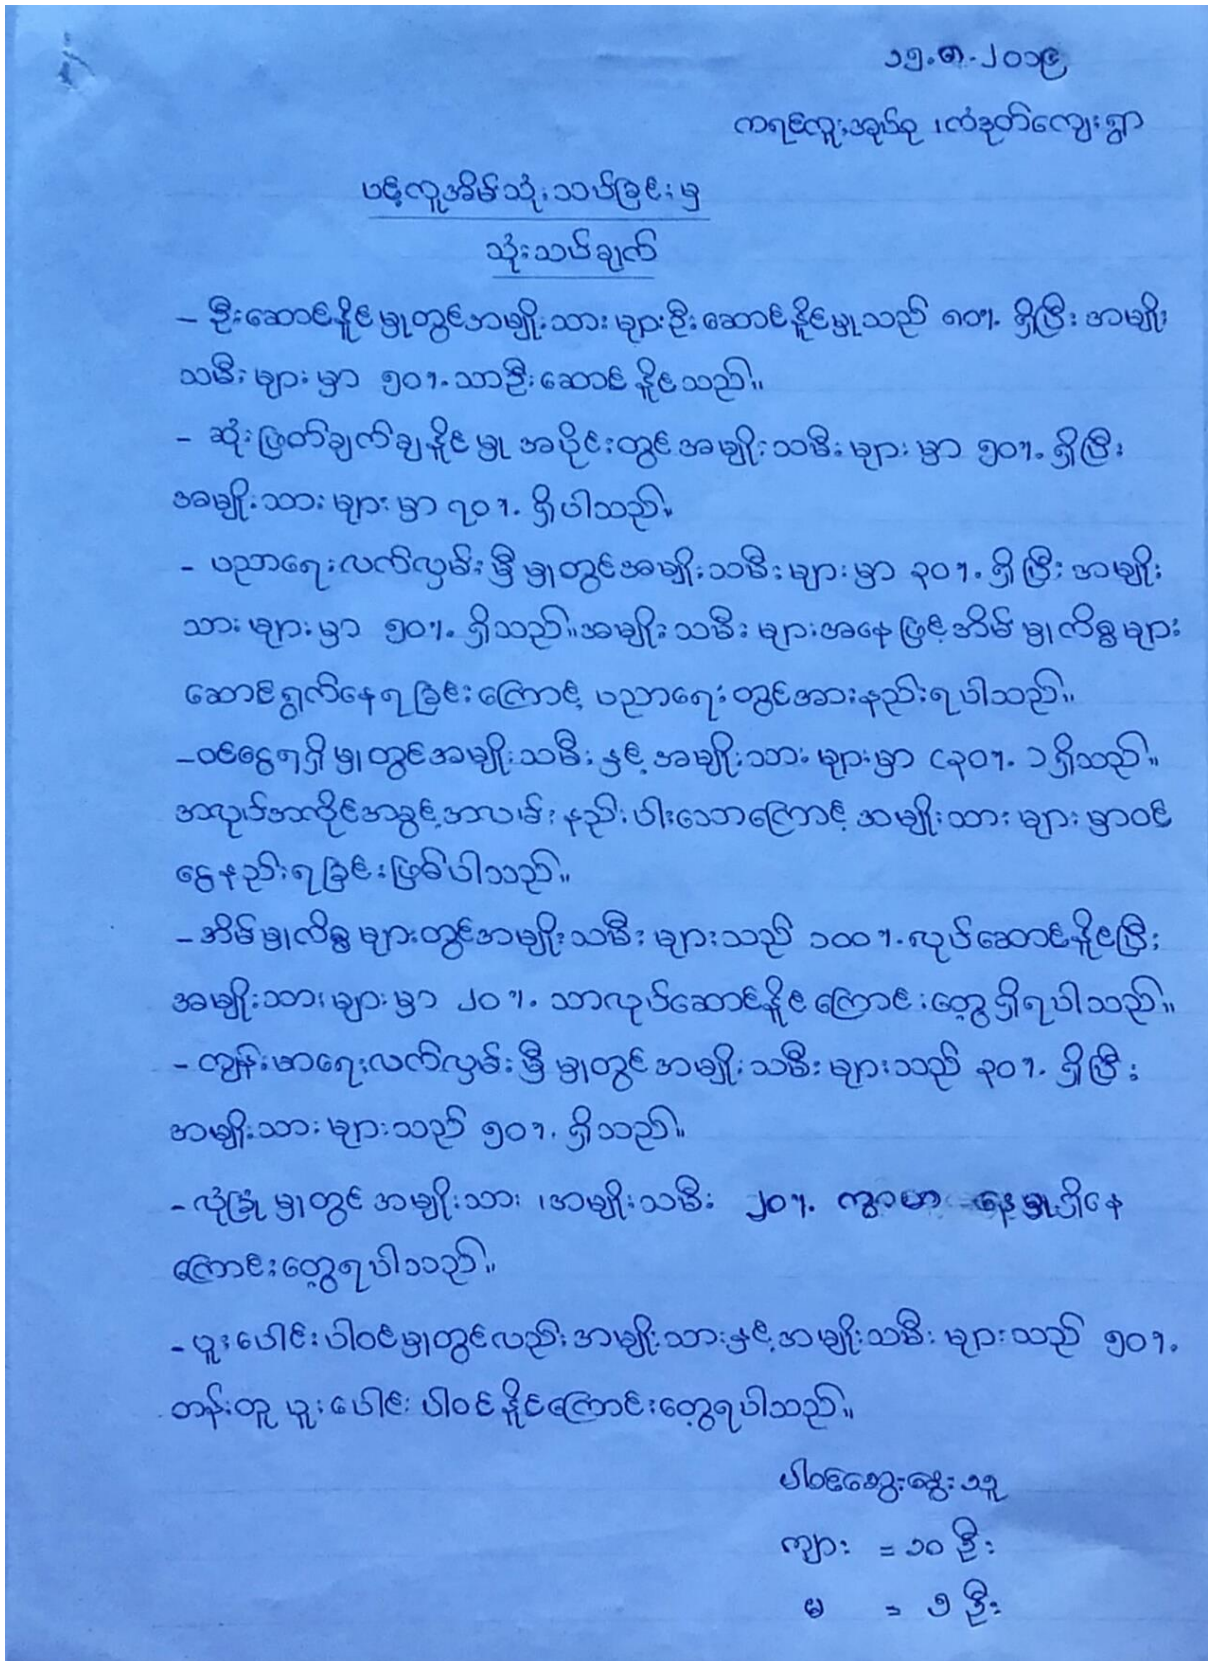 ၁၅.၈.၂၀၁၉
ကရင်ကူးအုပ်စု ၊ ကံဒုတ်ကျေးရွာ
ပင့်ကူအိမ်သုံးသပ်ခြင်းမှ
သုံးသပ်ချက်
- ဦးဆောင်နိူင်မှုတွင်အမျိုးသားများဦးဆောင်နိူင်မှုသည် ၈၀%. ရှိပြီး အမျိုး
သမီးများမှာ ၅၀%.သာဦးဆောင်နိူင်သည်။
- ဆုံးဖြတ်ချက်ချနိူင်မှု အပိုင်းတွင်အမျိုးသမီးများမှာ ၅၀%. ရှိပြီး
အမျိုးသားများမှာ ၇၀%. ရှိပါသည်။
- ပညာရေးလက်လှမ်းမှီမှုတွင်အမျိုးသမီးများမှာ ၃၀%. ရှိပြီး အမျိုး
သားများမှာ ၅၀%. ရှိသည်။အမျိုးသမီးများအနေဖြင့်အိမ်မှုကိစ္စများ
ဆောင်ရွက်နေရခြင်းကြောင့် ပညာရေးတွင်အားနည်းရပါသည်။
-ဝင်ငွေရရှိမှုတွင်အမျိုးသမီးနှင့်အမျိုးသားများမှာ (၃၀%.)ရှိသည်။
အလုပ်အကိုင်အခွင့်အလမ်းနည်းပါးသောကြောင့် အမျိုးသားများမှာဝင်
ငွေနည်းရခြင်းဖြစ်ပါသည်။
-အိမ်မှုကိစ္စများတွင်အမျိုးသမီးများသည် ၁၀၀%.လုပ်ဆောင်နိူင်ပြီး
အမျိုးသားများမှာ ၂၀%. သာလုပ်ဆောင်နိူင်ကြောင်းတွေ့ရှိရပါသည်။
- ကျွန်းမာရေးလက်လှမ်းမှီမှုတွင်အမျိုးသမီးများသည် ၃၀%. ရှိပြီး
အမျိုးသားများသည် ၅၀%. ရှိသည်။
-လုံခြုံမှုတွင်အမျိုးသား ၊အမျိုးသမီး ၂၀%. ကွာဟ နေမှုရှိနေ
ကြောင်းတွေ့ရပါသည်။
-ပူးပေါင်းပါဝင်မှုတွင်လည်းအမျိုးသားနှင့်အမျိုးသမီးများသည် ၅၀%.
တန်းတူ ပူးပေါင်းပါဝင်နိူင်ကြောင်းတွေ့ရပါသည်။
ပါဝင်ဆွေးနွေးသူ
ကျား = ၁၀ ဦး
မ = ၅ ဦး